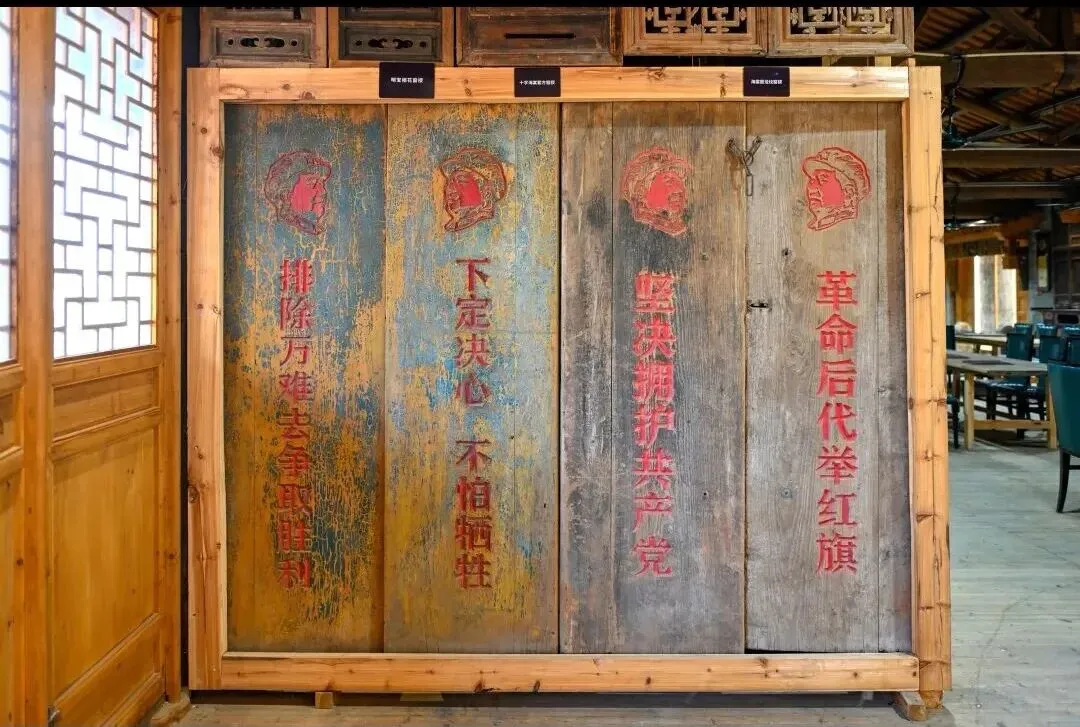 革命后代举红旗
坚决拥护共产党
下定决心 不怕牺牲
排除万难去争取胜利